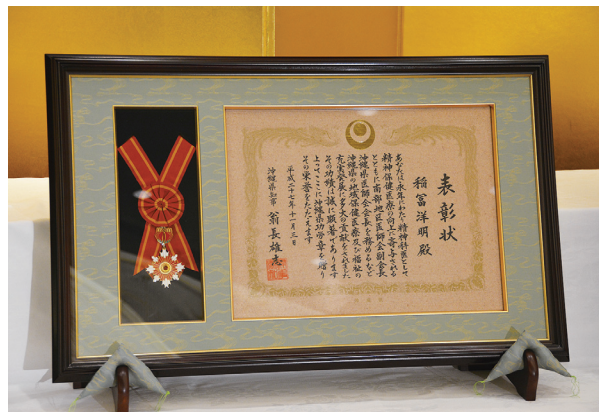 表彰状
稲冨洋明 殿
あなたは永年にわたり精神科医として
精神保健医療の向上に寄与される
とともに南部地区医師会副会長
沖縄県医師会会長を務めるなど
沖縄県の地域保健医療及び福祉の
充実発展に多大の貢献をされました
その功績は誠に顕著であります
よってここに沖縄県功労章を贈り
その栄誉をたたえます
平成二十七年十一月三日
沖縄県知事 翁長雄志